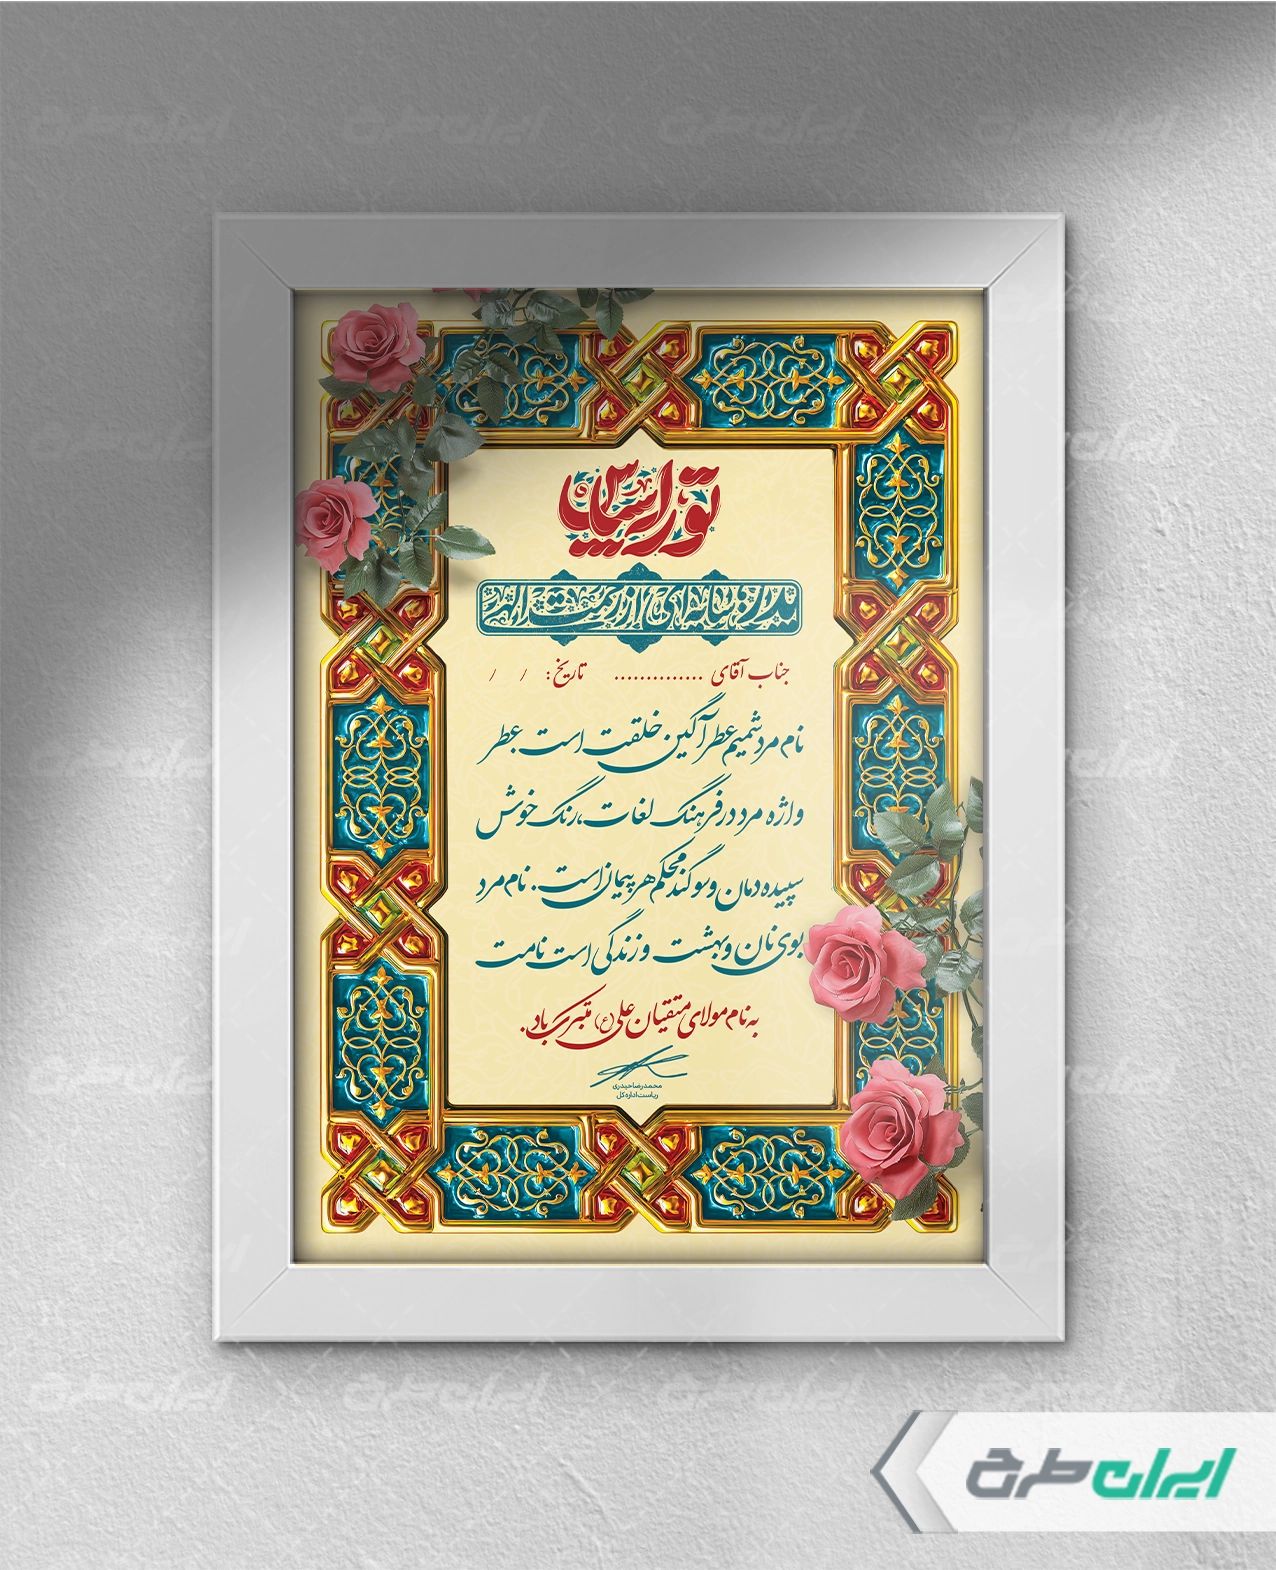 تو را سپاس
پدر نشانه‌ای از رحمت الهی
جناب آقای .............. تاریخ: / /
نام مرد شمیم عطرآگین خلقت است. عطر
واژه مرد در فرهنگ لغات، رنگ خوش
سپیده دمان و سوگند محکم هر پیمان است. نام مرد
بوی نان و بهشت و زندگی است نامت
به نام مولای متقیان علی (ع) متبرک باد.
محمدرضا حیدری
ریاست اداره کل
ایران طرح